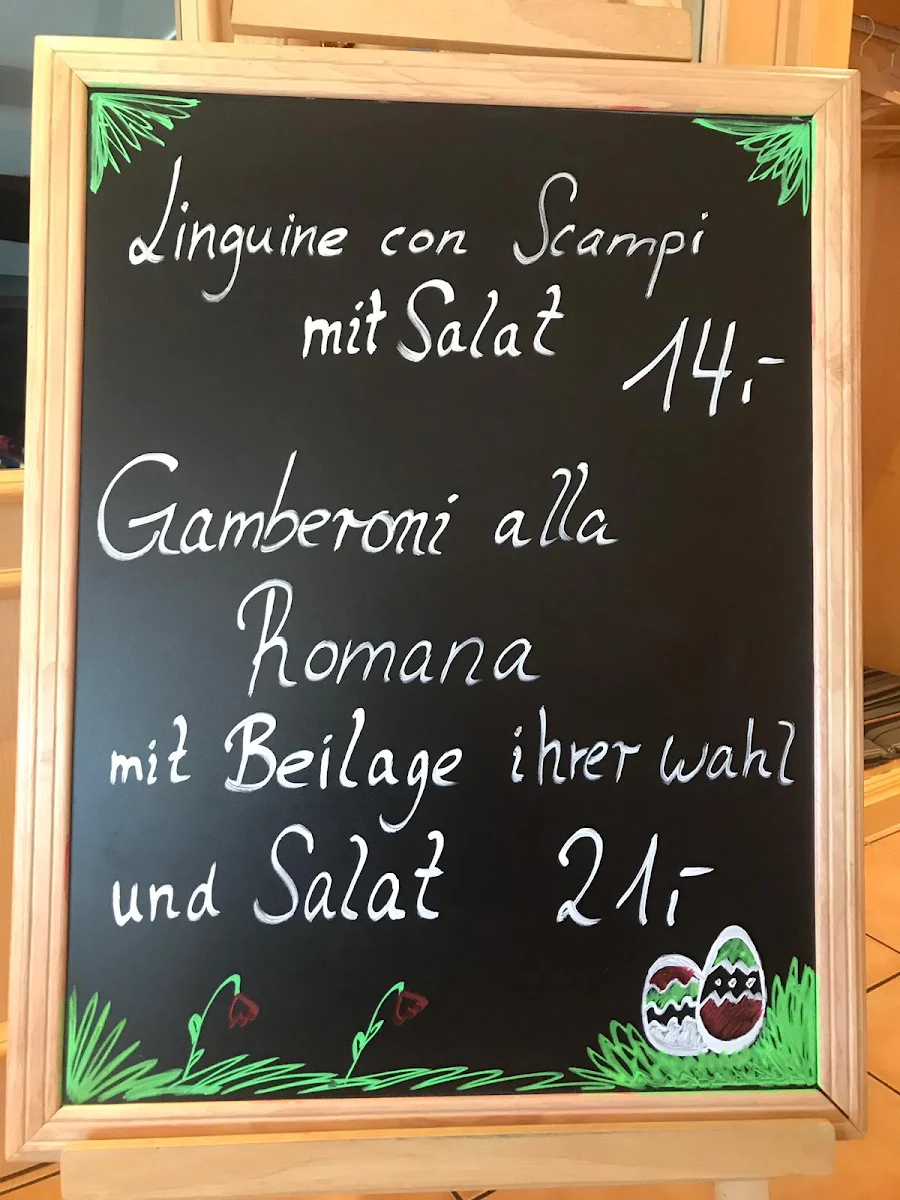 Linguine con Scampi
mit Salat
14,-
Gamberoni alla
Romana
mit Beilage ihrer wahl
und Salat 21,-